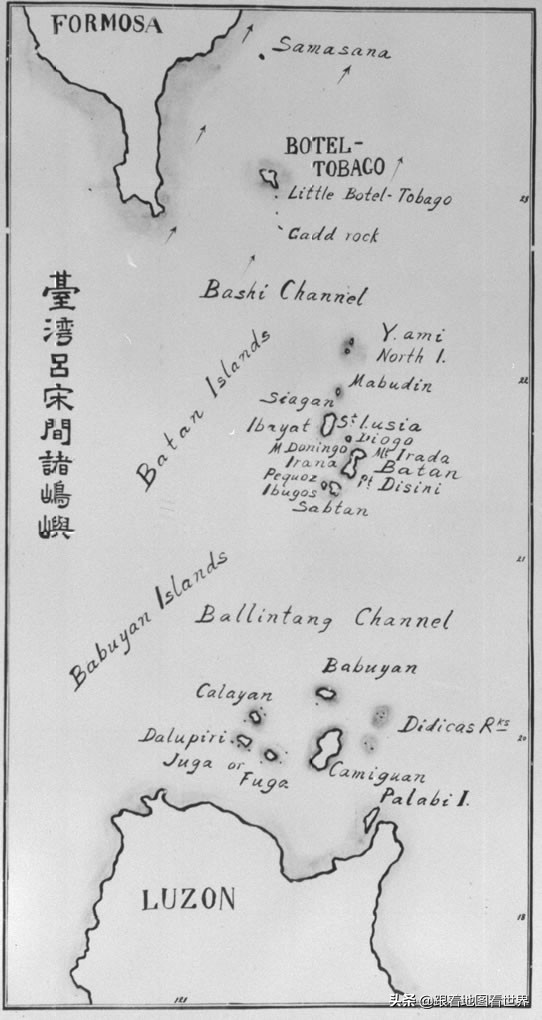 FORMOSA
Samasana
BOTEL-
TOBAGO
Little Botel-Tobago
Gadd rock
23
Bashi Channel
臺湾呂宋間諸嶋嶼
Batan Islands
Y.ami
North I.
22
Mabudin
Siagan
Ibayat
St Lusia
Diogo
M.Doningo
Mt Irada
Irana
Batan
Pequoz
Pt Disini
Ibugos
Sabtan
21
Babuyan Islands
Ballintang Channel
Babuyan
Calayan
Didicas Rks
Dalupiri
20
Juga or
Fuga
Camiguan
Palabi I.
LUZON
18
121
头条 @跟着地图看世界